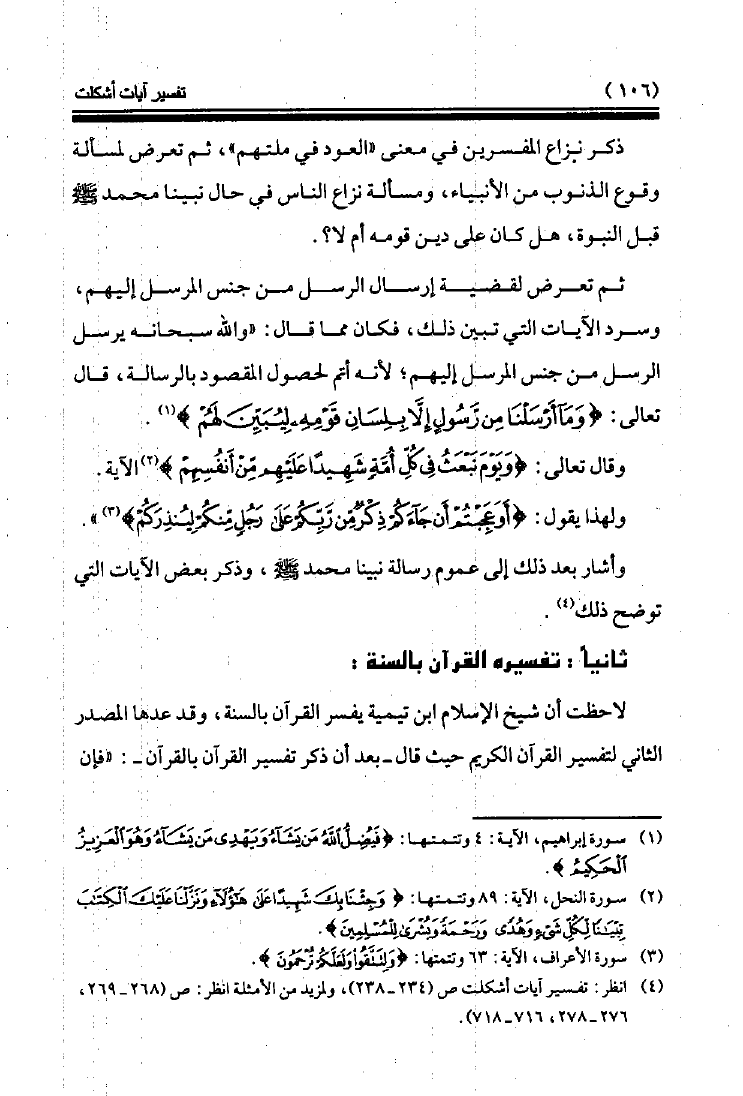 (١٠٦) تفسير آيات أشكلت
ذكر نزاع المفسرين في معنى «العود في ملتهم»، ثم تعرض لمسألة
وقوع الذنوب من الأنبياء، ومسألة نزاع الناس في حال نبينا محمد ﷺ
قبل النبوة، هل كان على دين قومه أم لا؟.
ثم تعرض لقضية إرسال الرسل من جنس المرسل إليهم،
وسرد الآيات التي تبين ذلك، فكان مما قال: «والله سبحانه يرسل
الرسل من جنس المرسل إليهم؛ لأنه أتم لحصول المقصود بالرسالة، قال
تعالى: ﴿وَمَآ أَرْسَلْنَا مِن رَّسُولٍ إِلَّا بِلِسَانِ قَوْمِهِۦ لِيُبَيِّنَ لَهُمْ﴾(١).
وقال تعالى: ﴿وَيَوْمَ نَبْعَثُ فِي كُلِّ أُمَّةٍ شَهِيدًا عَلَيْهِم مِّنْ أَنفُسِهِمْ﴾(٢) الآية.
ولهذا يقول: ﴿أَوَعَجِبْتُمْ أَن جَآءَكُمْ ذِكْرٌ مِّن رَّبِّكُمْ عَلَىٰ رَجُلٍ مِّنكُمْ لِيُنذِرَكُمْ﴾(٣)».
وأشار بعد ذلك إلى عموم رسالة نبينا محمد ﷺ، وذكر بعض الآيات التي
توضح ذلك(٤).
ثانياً : تفسيره القرآن بالسنة :
لاحظت أن شيخ الإسلام ابن تيمية يفسر القرآن بالسنة، وقد عدها المصدر
الثاني لتفسير القرآن الكريم حيث قال ـ بعد أن ذكر تفسير القرآن بالقرآن ـ : «فإن
(١) سورة إبراهيم، الآية: ٤ وتتمتها: ﴿فَيُضِلُّ اللَّهُ مَن يَشَآءُ وَيَهْدِي مَن يَشَآءُ وَهُوَ الْعَزِيزُ
الْحَكِيمُ﴾.
(٢) سورة النحل، الآية: ٨٩ وتتمتها: ﴿وَجِئْنَا بِكَ شَهِيدًا عَلَىٰ هَٰٓؤُلَآءِ وَنَزَّلْنَا عَلَيْكَ الْكِتَٰبَ
تِبْيَٰنًا لِّكُلِّ شَيْءٍ وَهُدًى وَرَحْمَةً وَبُشْرَىٰ لِلْمُسْلِمِينَ﴾.
(٣) سورة الأعراف، الآية: ٦٣ وتتمتها: ﴿وَلِتَتَّقُوا وَلَعَلَّكُمْ تُرْحَمُونَ﴾.
(٤) انظر: تفسير آيات أشكلت ص (٢٣٤ـ٢٣٨)، ولمزيد من الأمثلة انظر: ص (٢٦٨ـ٢٦٩،
٢٧٦ـ٢٧٨، ٧١٦ـ٧١٨).